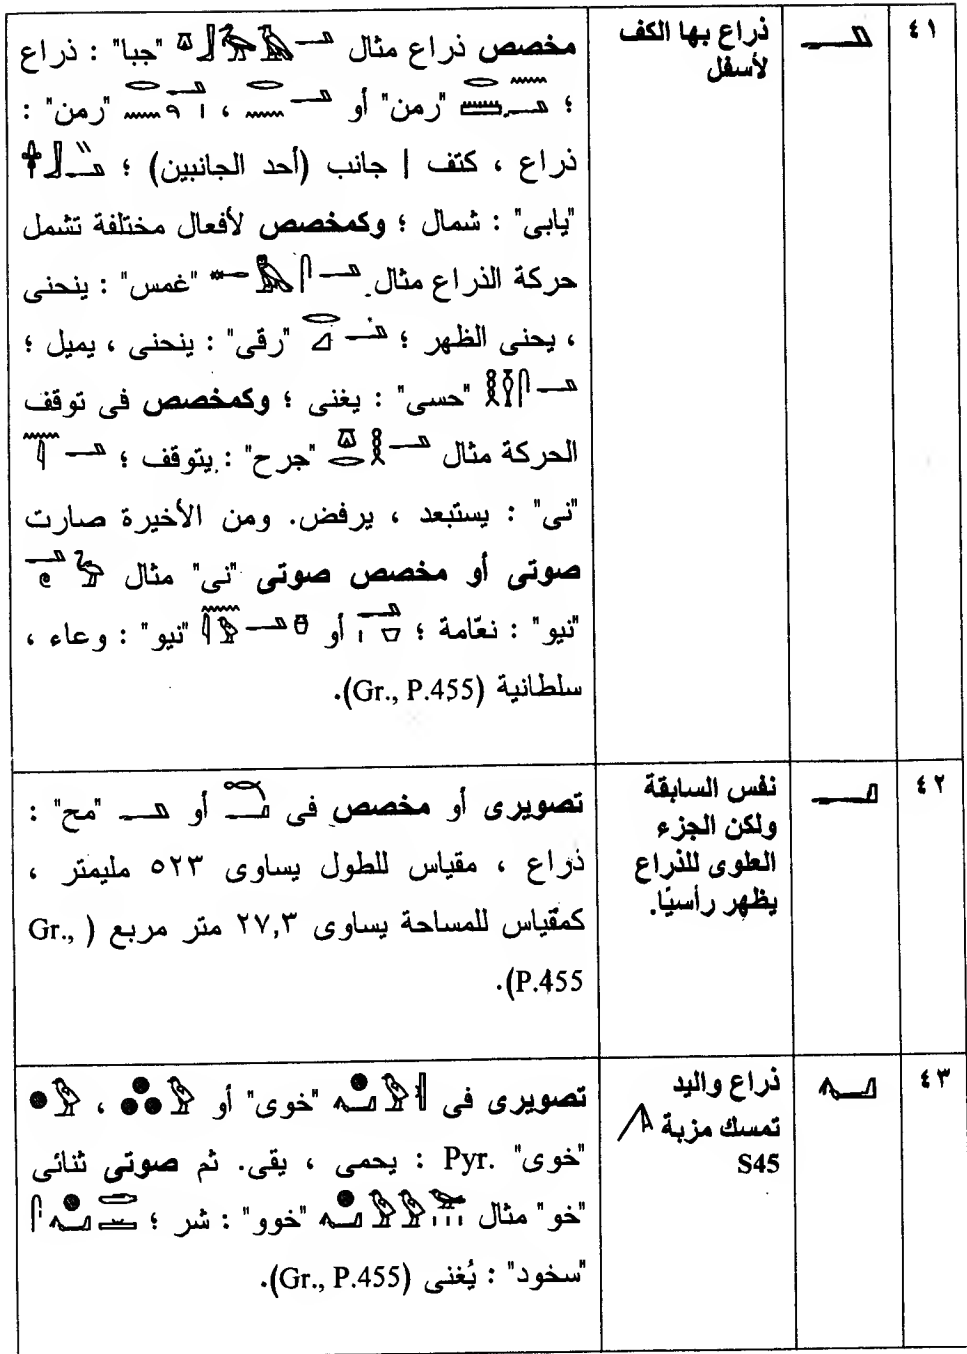 ٤١
ذراع بها الكف
لأسفل
مخصص ذراع مثال "جبا" : ذراع
؛ "رمن" أو ، "رمن" :
ذراع ، كتف | جانب (أحد الجانبين) ؛
"يابى" : شمال ؛ وكمخصص لأفعال مختلفة تشمل
حركة الذراع مثال "غمس" : ينحنى
، يحنى الظهر ؛ "رقى" : ينحنى ، يميل ؛
"حسى" : يغنى ؛ وكمخصص فى توقف
الحركة مثال "جرح" : يتوقف ؛
"نى" : يستبعد ، يرفض. ومن الأخيرة صارت
صوتى أو مخصص صوتى "نى" مثال
"نيو" : نعّامة ؛ أو "نيو" : وعاء ،
سلطانية (Gr., P.455).
٤٢
نفس السابقة
ولكن الجزء
العلوى للذراع
يظهر رأسيًا.
تصويرى أو مخصص فى أو "مح" :
ذراع ، مقياس للطول يساوى ٥٢٣ مليمتر ،
كمقياس للمساحة يساوى ٢٧,٣ متر مربع (Gr.,
P.455).
٤٣
ذراع واليد
تمسك مزبة
S45
تصويرى فى "خوى" أو ،
"خوى" Pyr. : يحمى ، يقى. ثم صوتى ثنائى
"خو" مثال "خوو" : شر ؛
"سخود" : يُغنى (Gr., P.455).